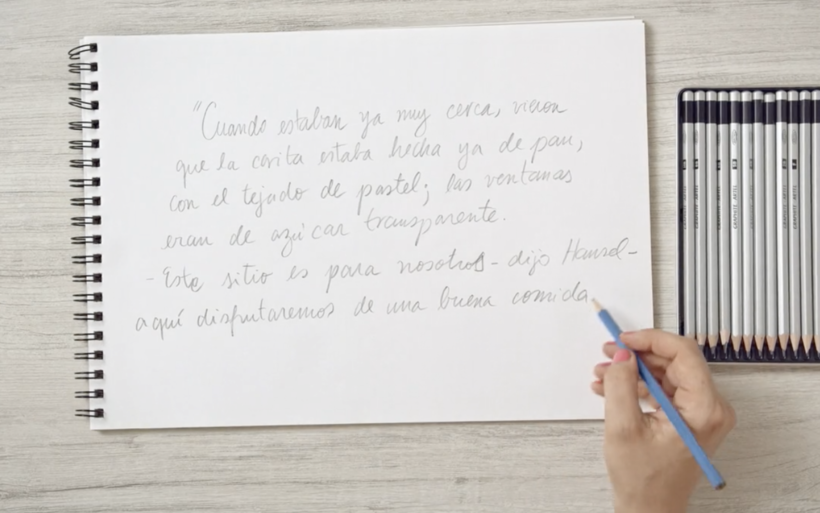 "Cuando estaban ya muy cerca, vieron
que la casita estaba hecha ya de pan,
con el tejado de pastel; las ventanas
eran de azúcar transparente.
- Este sitio es para nosotros - dijo Hansel -
aquí disfrutaremos de una buena comida